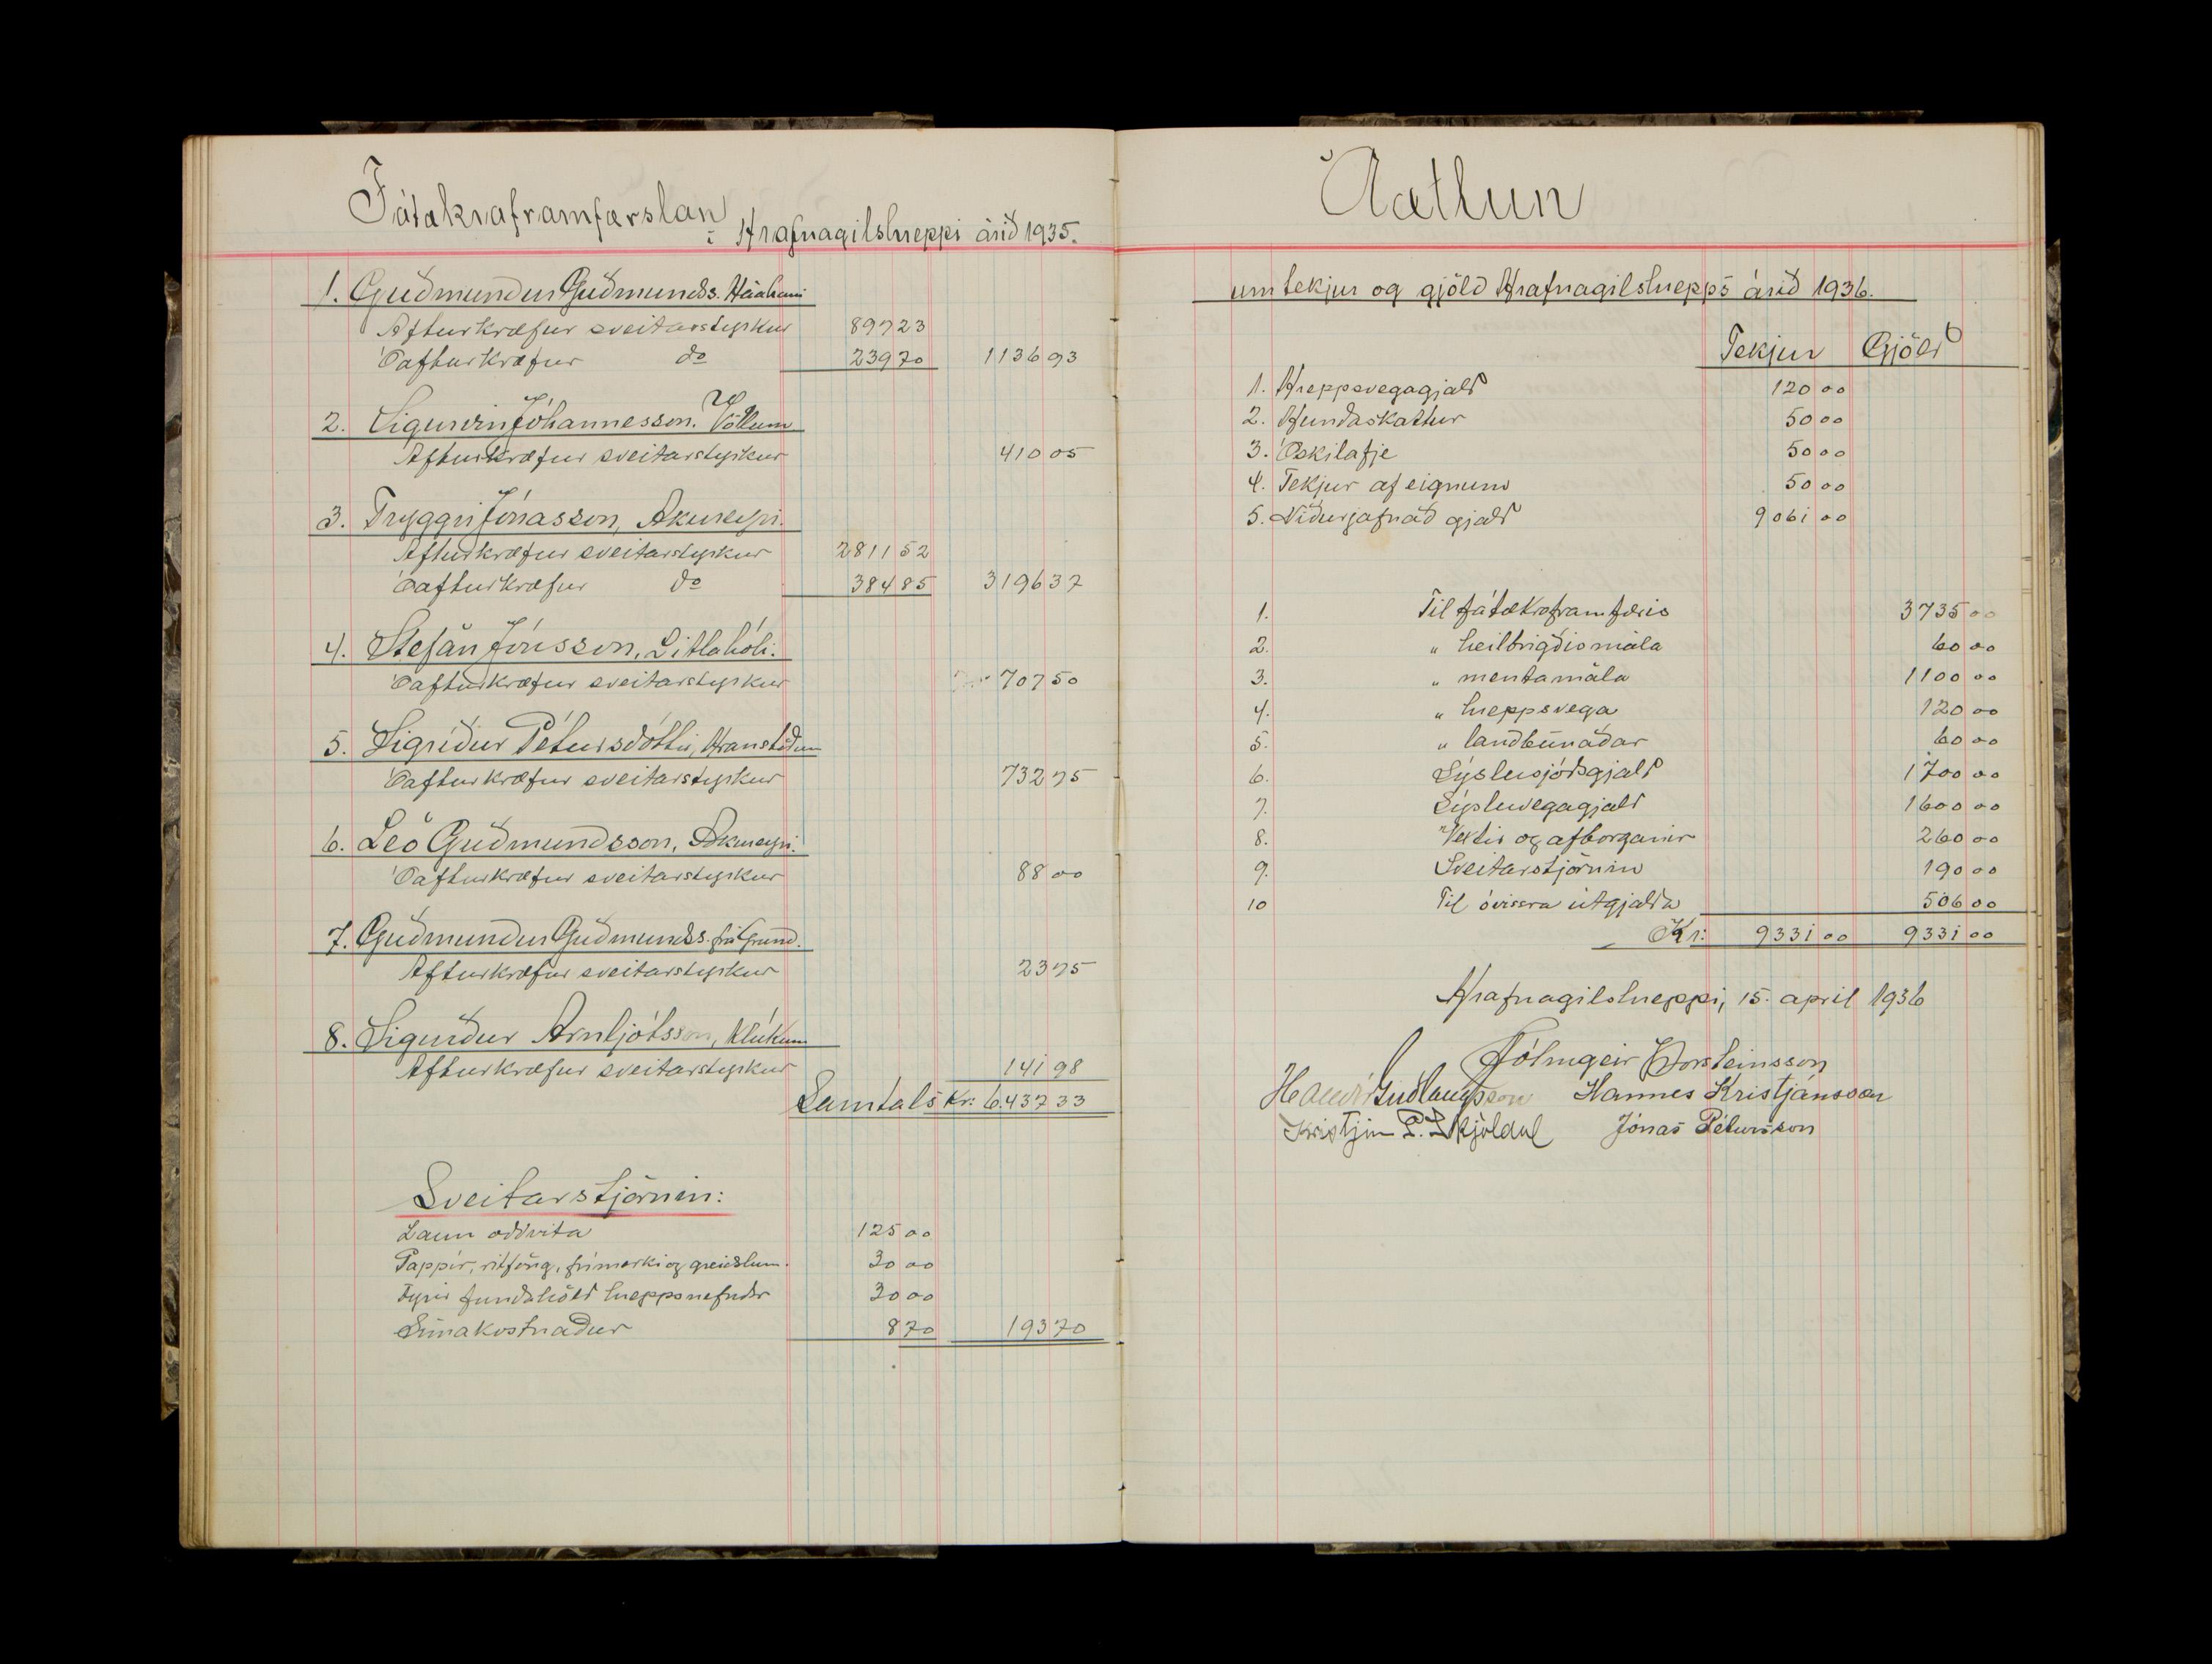 Fátækraframfærslan
í Hrafnagilshreppi árið 1935.
1. Guðmundur Guðmunds. Háahami
Afturkræfur sveitarstyrkur 897 23
Óafturkræfur do 239 70 1136 93
2. Sigurvin Jóhannesson. Völlum
Afturkræfur sveitarstyrkur 410 05
3. Tryggvi Jónasson, Akureyri.
Afturkræfur sveitarstyrkur 2811 52
Óafturkræfur do 384 85 3196 37
4. Stefán Jónsson, Litlahóli.
Óafturkræfur sveitarstyrkur 707 50
5. Sigríður Pétursdóttir, Hranastöðum
Óafturkræfur sveitarstyrkur 732 75
6. Leó Guðmundsson, Akureyri.
Óafturkræfur sveitarstyrkur 88 00
7. Guðmundur Guðmunds. frá Grund.
Afturkræfur sveitarstyrkur 23 75
8. Sigurður Arnljótsson, Klúkum
Afturkræfur sveitarstyrkur 141 98
Samtals Kr: 6.437 33
Sveitarstjórnin:
Laun oddvita 125 00
Pappír, ritföng, frímerki og greiðslum. 30 00
Fyrir fundahöld hreppsnefndar 30 00
Símakostnaður 8 70 193 70
Áætlun
um tekjur og gjöld Hrafnagilshrepps árið 1936.
Tekjur Gjöld
1. Hreppsvegagjald 120 00
2. Hundaskattur 50 00
3. Óskilafje 50 00
4. Tekjur af eignum 50 00
5. Niðurjafnað gjald 9061 00
1. Til fátækraframfæris 3735 00
2. " heilbrigðismála 60 00
3. " mentamála 1100 00
4. " hreppsvega 120 00
5. " landbúnaðar 60 00
6. Sýslusjóðsgjald 1700 00
7. Sýsluvegagjald 1600 00
8. Vextir og afborganir 260 00
9. Sveitarstjórnin 190 00
10 Til óvissra útgjalda 506 00
Kr: 9331 00 9331 00
Hrafnagilshreppi, 15. apríl 1936
Hólmgeir Þorsteinsson
Guðlaugsson Hannes Kristjánsson
Kristján P. Jónas Pétursson